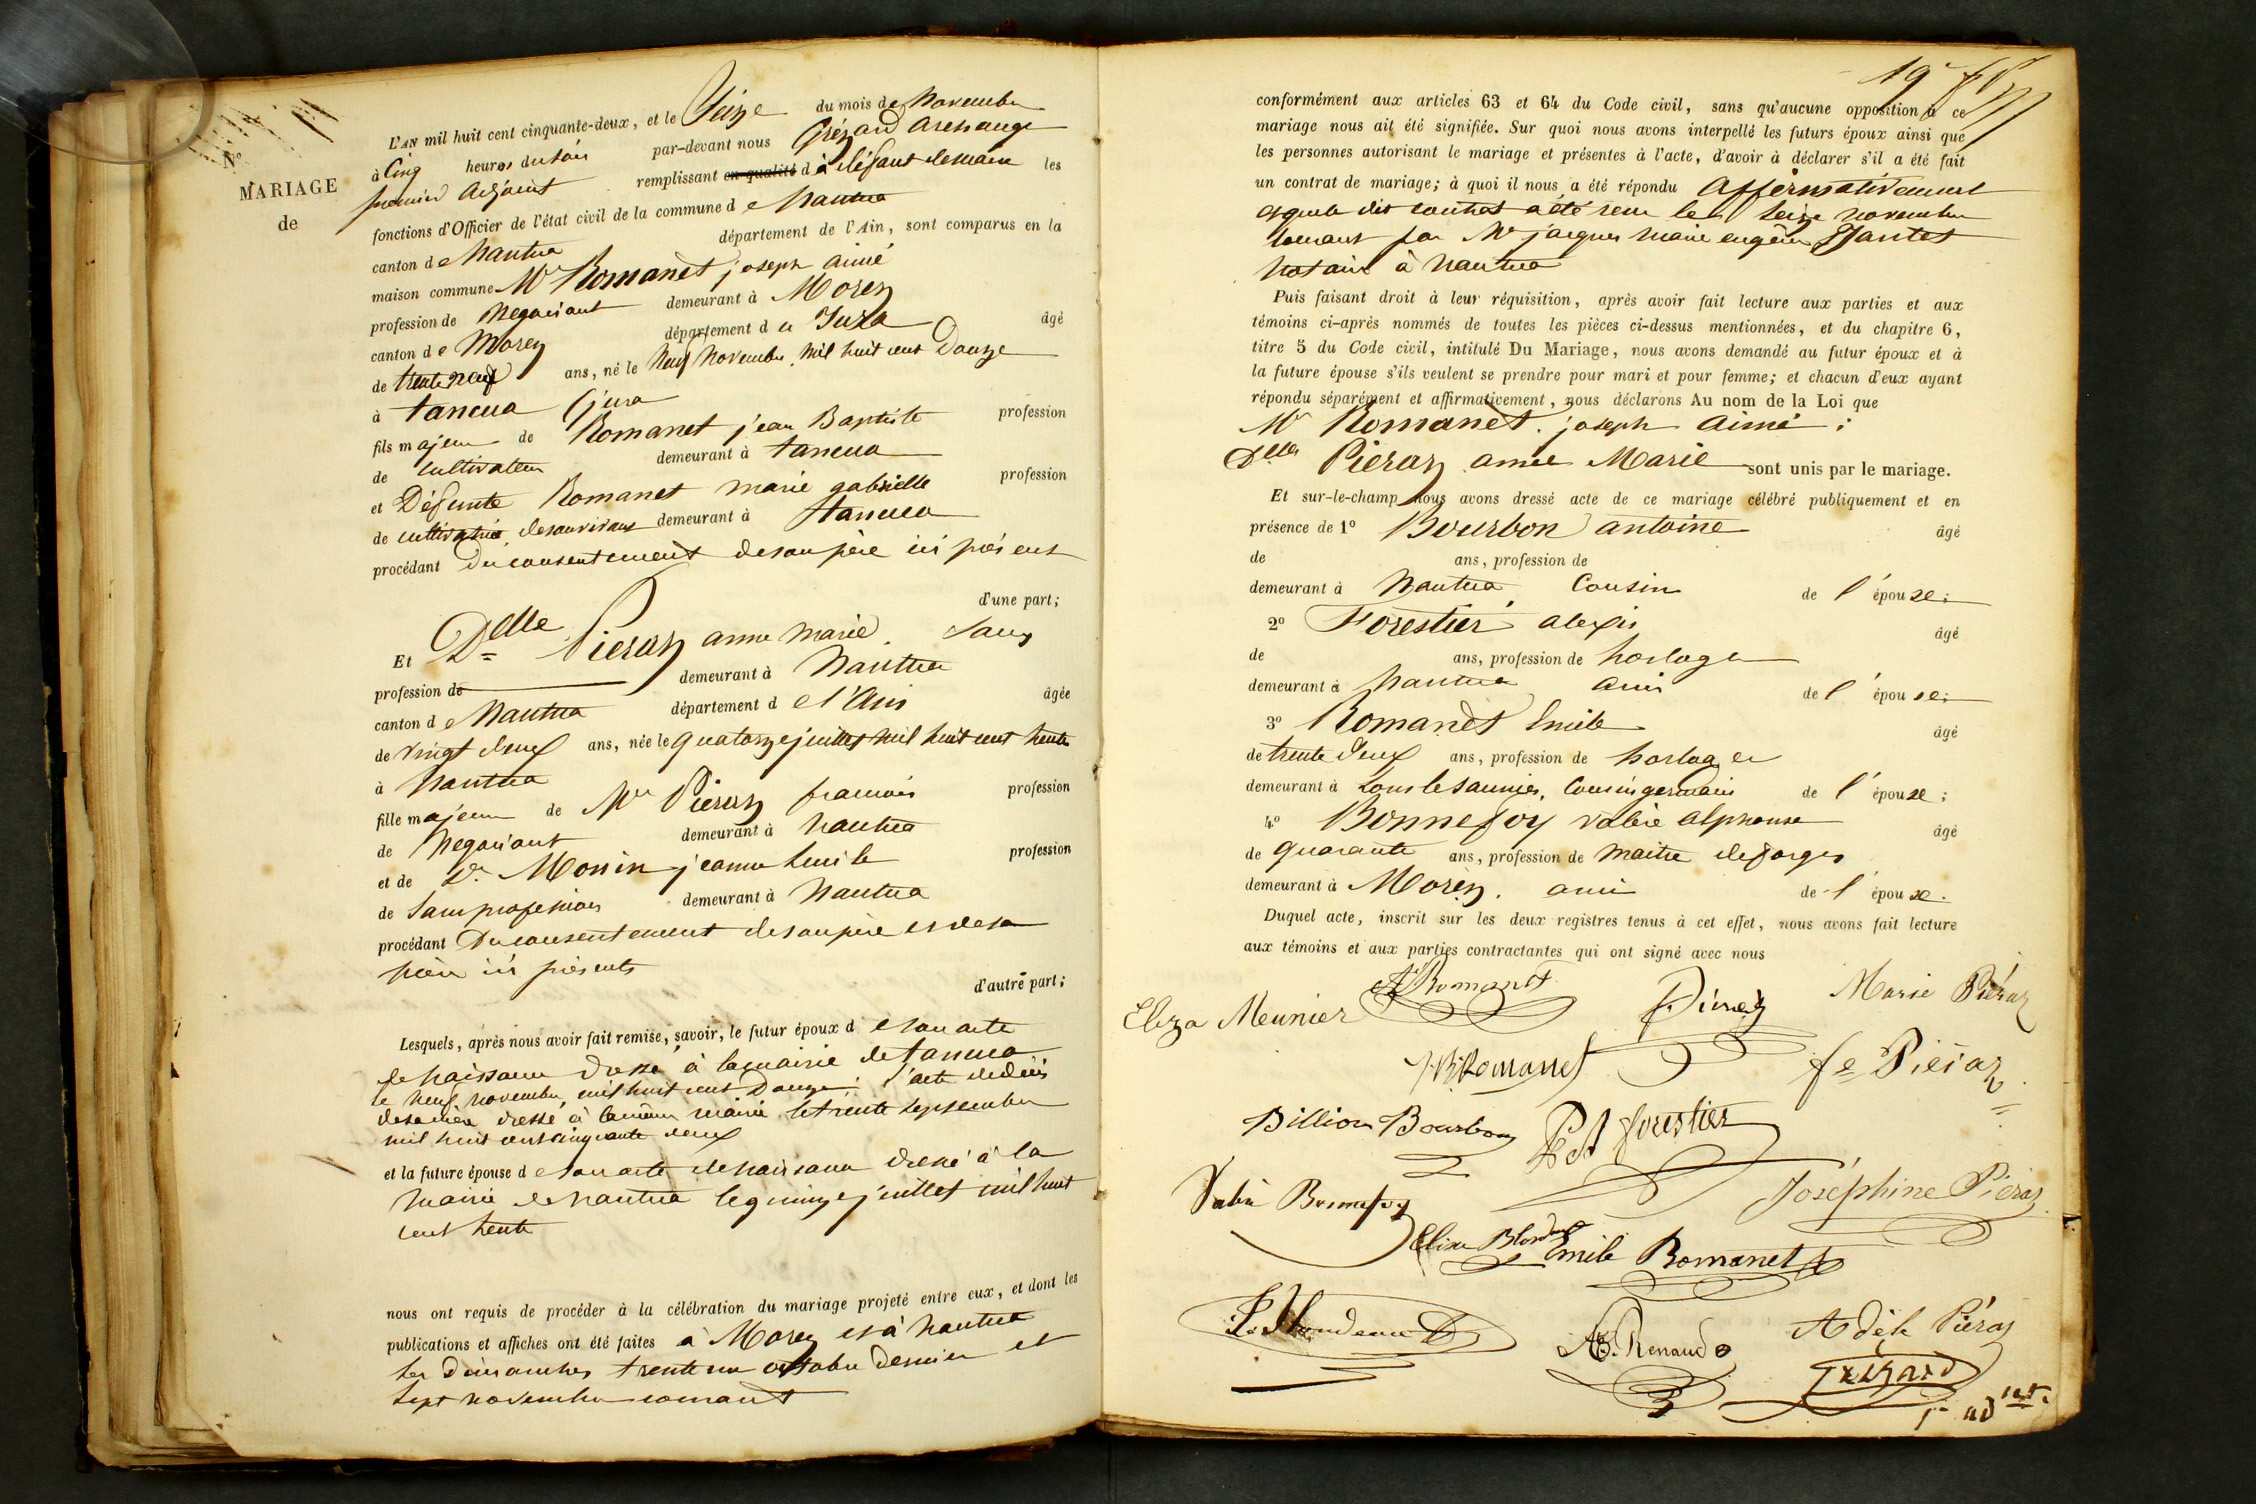 Nº
MARIAGE
de
L'AN mil huit cent cinquante-deux, et le Seize du mois de Novembre
à Cinq heures du soir par-devant nous Grézard Archange
premier Adjoint remplissant en qualité d à défaut de maire les
fonctions d'Officier de l'état civil de la commune de Nantua
canton de Nantua département de l'Ain, sont comparus en la
maison commune Mr Romanet joseph aimé
profession de Negociant demeurant à Morez
canton de Morez département du Jura âgé
de trente neuf ans, né le Neuf Novembre mil huit cent Douze
à tancua (jura
fils majeur de Romanet jean Baptiste profession
de cultivateur demeurant à tancua
et Défunte Romanet marie gabrielle profession
de cultivatrice, de son vivant demeurant à tancua
procédant du consentement de son père ici présent
d'une part;
Et Delle Pieraz anne marie Sans
profession de demeurant à Nantua
canton de Nantua département de l'Ain âgée
de vingt deux ans, née le quatorze juillet mil huit cent trente
à Nantua
fille majeure de Mr Pieraz francois profession
de Negociant demeurant à Nantua
et de De Monin jeanne profession
de Sans profession demeurant à Nantua
procédant du consentement de son père et de sa
mère ici présents
d'autre part;
Lesquels, après nous avoir fait remise, savoir, le futur époux de son acte
de naissance dressé à la mairie de tancua
le neuf novembre, mil huit cent Douze; l'acte de décès
de sa mère dressé à la même mairie le trente septembre
mil huit cent cinquante deux
et la future épouse de son acte de naissance dressé à la
mairie de nantua le quinze juillet mil huit
cent trente
nous ont requis de procéder à la célébration du mariage projeté entre eux, et dont les
publications et affiches ont été faites à Morez et à nantua
les Dimanches trente un octobre dernier et
sept novembre courant
19
conformément aux articles 63 et 64 du Code civil, sans qu'aucune opposition à ce
mariage nous ait été signifiée. Sur quoi nous avons interpellé les futurs époux ainsi que
les personnes autorisant le mariage et présentes à l'acte, d'avoir à déclarer s'il a été fait
un contrat de mariage; à quoi il nous a été répondu affirmativement
et que le dit contrat a été recu le seize novembre
courant par Me jacques marie eugène Jantet
notaire à nantua
Puis faisant droit à leur réquisition, après avoir fait lecture aux parties et aux
témoins ci-après nommés de toutes les pièces ci-dessus mentionnées, et du chapitre 6,
titre 5 du Code civil, intitulé Du Mariage, nous avons demandé au futur époux et à
la future épouse s'ils veulent se prendre pour mari et pour femme; et chacun d'eux ayant
répondu séparément et affirmativement, nous déclarons Au nom de la Loi que
Mr Romanet joseph Aimé;
Delle Pieraz anne Marie sont unis par le mariage.
Et sur-le-champ nous avons dressé acte de ce mariage célébré publiquement et en
présence de 1º Bourbon antoine âgé
de ans, profession de
demeurant à Nantua Cousin de l'épouse;
2º Forestier alexis âgé
de ans, profession de horloger
demeurant à Nantua ami de l'épouse;
3º Romanet Emile âgé
de trente deux ans, profession de horloger
demeurant à Lons le saunier, Cousin germain de l'épouse;
4º Bonnefoy valère alphonse âgé
de quarante ans, profession de maitre de forges
demeurant à Morez. ami de l'épouse.
Duquel acte, inscrit sur les deux registres tenus à cet effet, nous avons fait lecture
aux témoins et aux parties contractantes qui ont signé avec nous
A Romanet
Eliza Meunier Piéraz Marie Piéraz
JB Romanet fe Piéraz
Billion Bourbon forestier
Bonnefoy Joséphine Piéraz
Elisa Emile Romanet
Renaud Adèle Piéraz
Grézard
1er adjt